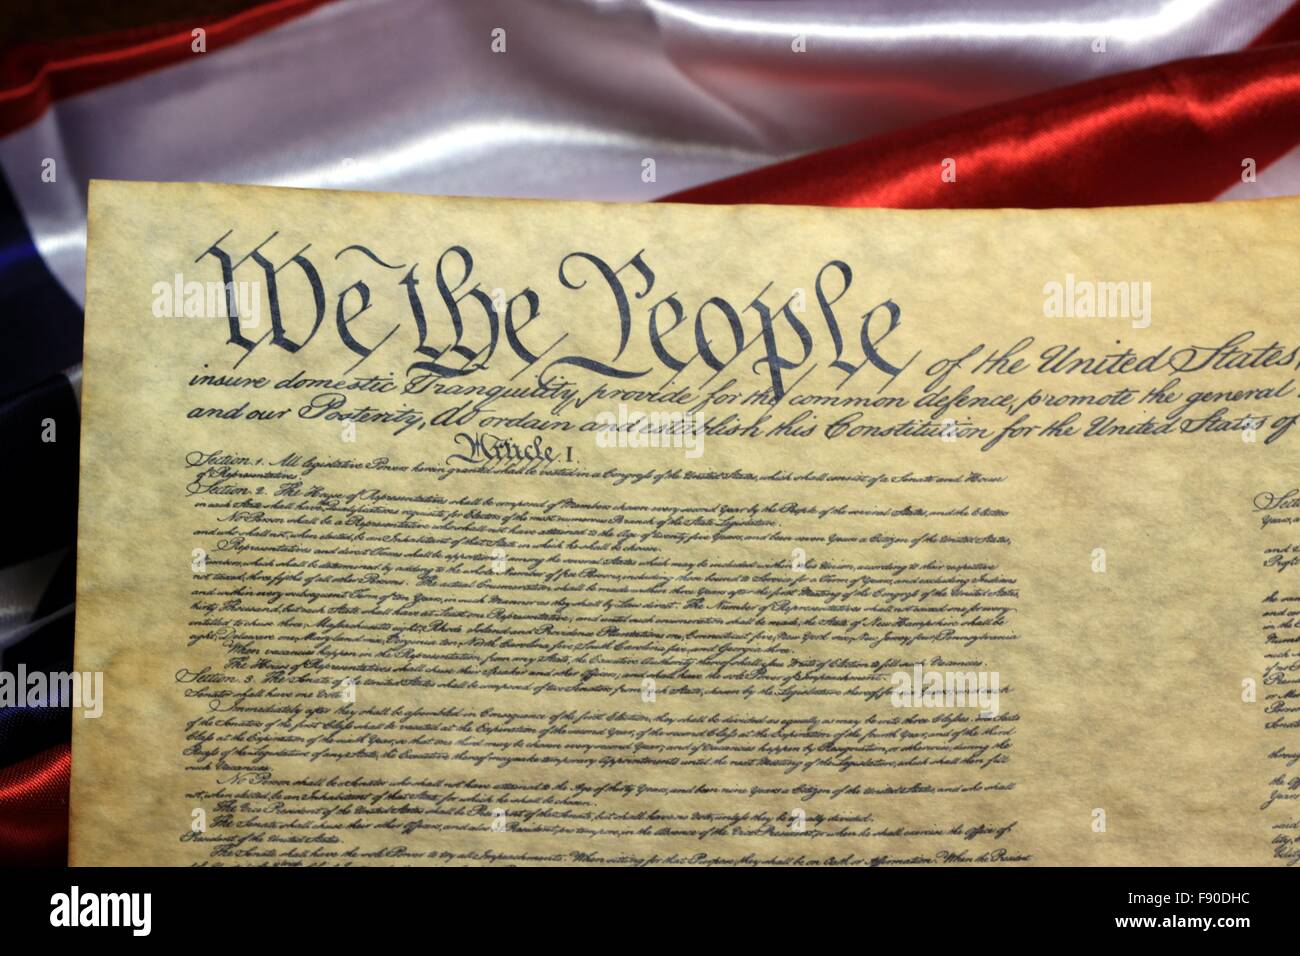 We the People of the United States,
insure domestic Tranquility, provide for the common defence, promote the general
and our Posterity, do ordain and establish this Constitution for the United States of
Article. I.
Section. 1. All legislative Powers herein granted shall be vested in a Congress of the United States, which shall consist of a Senate and House
of Representatives.
Section. 2. The House of Representatives shall be composed of Members chosen every second Year by the People of the several States, and the Electors
in each State shall have Qualifications requisite for Electors of the most numerous Branch of the State Legislature.
No Person shall be a Representative who shall not have attained to the Age of twenty five Years, and been seven Years a Citizen of the United States,
and who shall not, when elected, be an Inhabitant of that State in which he shall be chosen.
Representatives and direct Taxes shall be apportioned among the several States which may be included within this Union, according to their respective
Numbers, which shall be determined by adding to the whole Number of free Persons, including those bound to Service for a Term of Years, and excluding Indians
not taxed, three fifths of all other Persons. The actual Enumeration shall be made within three Years after the first Meeting of the Congress of the United States,
and within every subsequent Term of ten Years, in such Manner as they shall by Law direct. The Number of Representatives shall not exceed one for every
thirty Thousand, but each State shall have at Least one Representative; and until such enumeration shall be made, the State of New Hampshire shall be
entitled to chuse three, Massachusetts eight, Rhode Island and Providence Plantations one, Connecticut five, New York six, New Jersey four, Pennsylvania
eight, Delaware one, Maryland six, Virginia ten, North Carolina five, South Carolina five, and Georgia three.
When vacancies happen in the Representation from any State, the Executive Authority thereof shall issue Writs of Election to fill such Vacancies.
The House of Representatives shall chuse their Speaker and other Officers; and shall have the sole Power of Impeachment.
Section. 3. The Senate of the United States shall be composed of two Senators from each State, chosen by the Legislature thereof, for six Years; and each
Senator shall have one Vote.
Immediately after they shall be assembled in Consequence of the first Election, they shall be divided as equally as may be into three Classes. The Seats
of the Senators of the first Class shall be vacated at the Expiration of the second Year, of the second Class at the Expiration of the fourth Year, and of the third
Class at the Expiration of the sixth Year, so that one third may be chosen every second Year; and if Vacancies happen by Resignation, or otherwise, during the
Recess of the Legislature of any State, the Executive thereof may make temporary Appointments until the next Meeting of the Legislature, which shall then fill
such Vacancies.
No Person shall be a Senator who shall not have attained to the Age of thirty Years, and been nine Years a Citizen of the United States, and who shall
not, when elected, be an Inhabitant of that State for which he shall be chosen.
The Vice President of the United States shall be President of the Senate, but shall have no Vote, unless they be equally divided.
The Senate shall chuse their other Officers, and also a President pro tempore, in the Absence of the Vice President, or when he shall exercise the Office of
President of the United States.
The Senate shall have the sole Power to try all Impeachments. When sitting for that Purpose, they shall be on Oath or Affirmation. When the President
alamy
Image ID: F90DHC
www.alamy.com